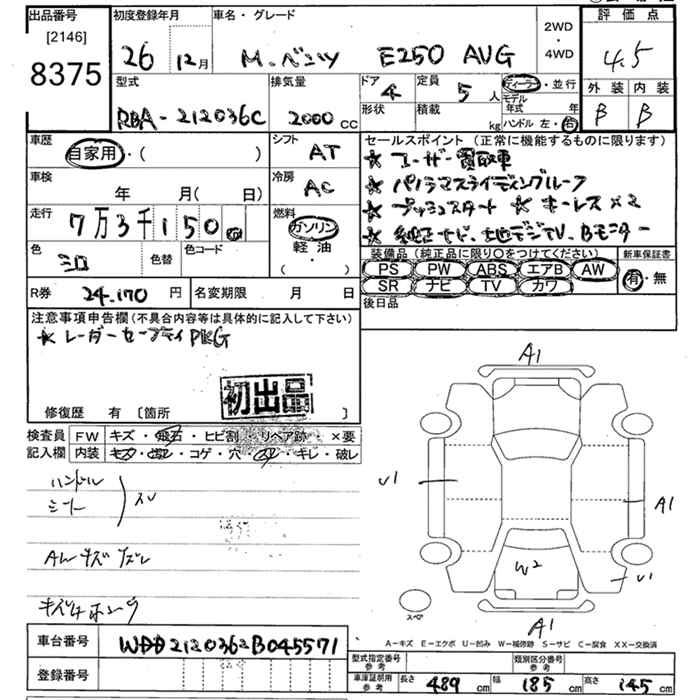 出品番号 初度登録年月 車名・グレード 2WD・4WD 評価点
[2146]
8375 26 12月 M.ベンツ E250 AVG 4.5
型式 排気量 ドア 4 定員 5人 ディーラー・並行 外装 内装
RBA-212036C 2000cc 形状 積載 kg モデル年式 年 ハンドル 左・右 B B
車歴 シフト セールスポイント (正常に機能するものに限ります)
自家用・( ) AT ★ユーザー買取車
車検 冷房 ★パノラマスライディングルーフ
年 月( 日) AC ★プッシュスタート ★キーレス×2
走行 燃料 ★純正ナビ、地デジTV、Bモニター
7万3千150 ガソリン 軽油 ( ・ )
色 シロ 色替 色コード
装備品 (純正品に限り○をつけてください) 新車保証書
PS PW ABS エアB AW 有・無
SR ナビ TV カワ
R券 24.170円 名変期限 月 日 後日品
注意事項申告欄 (不具合内容等は具体的に記入して下さい)
★レーダーセーフティPKG
初出品
修復歴 有 [箇所 ]
検査員 FW キズ・飛石・ヒビ割・リペア跡・×要
記入欄 内装 キズ・コゲ・穴・キレ・破レ
ハンドル
シート スレ
AW キズ
A1
U1
A1
W2
U1
スペア
A1
A-キズ E-エクボ U-凹み W-補修跡 S-サビ C-腐食 XX-交換済
車台番号 WDD2120362B045571
登録番号
型式指定番号 参考 類別区分番号 参考
車庫証明用 参考 長さ 489cm 幅 185cm 高さ 145cm